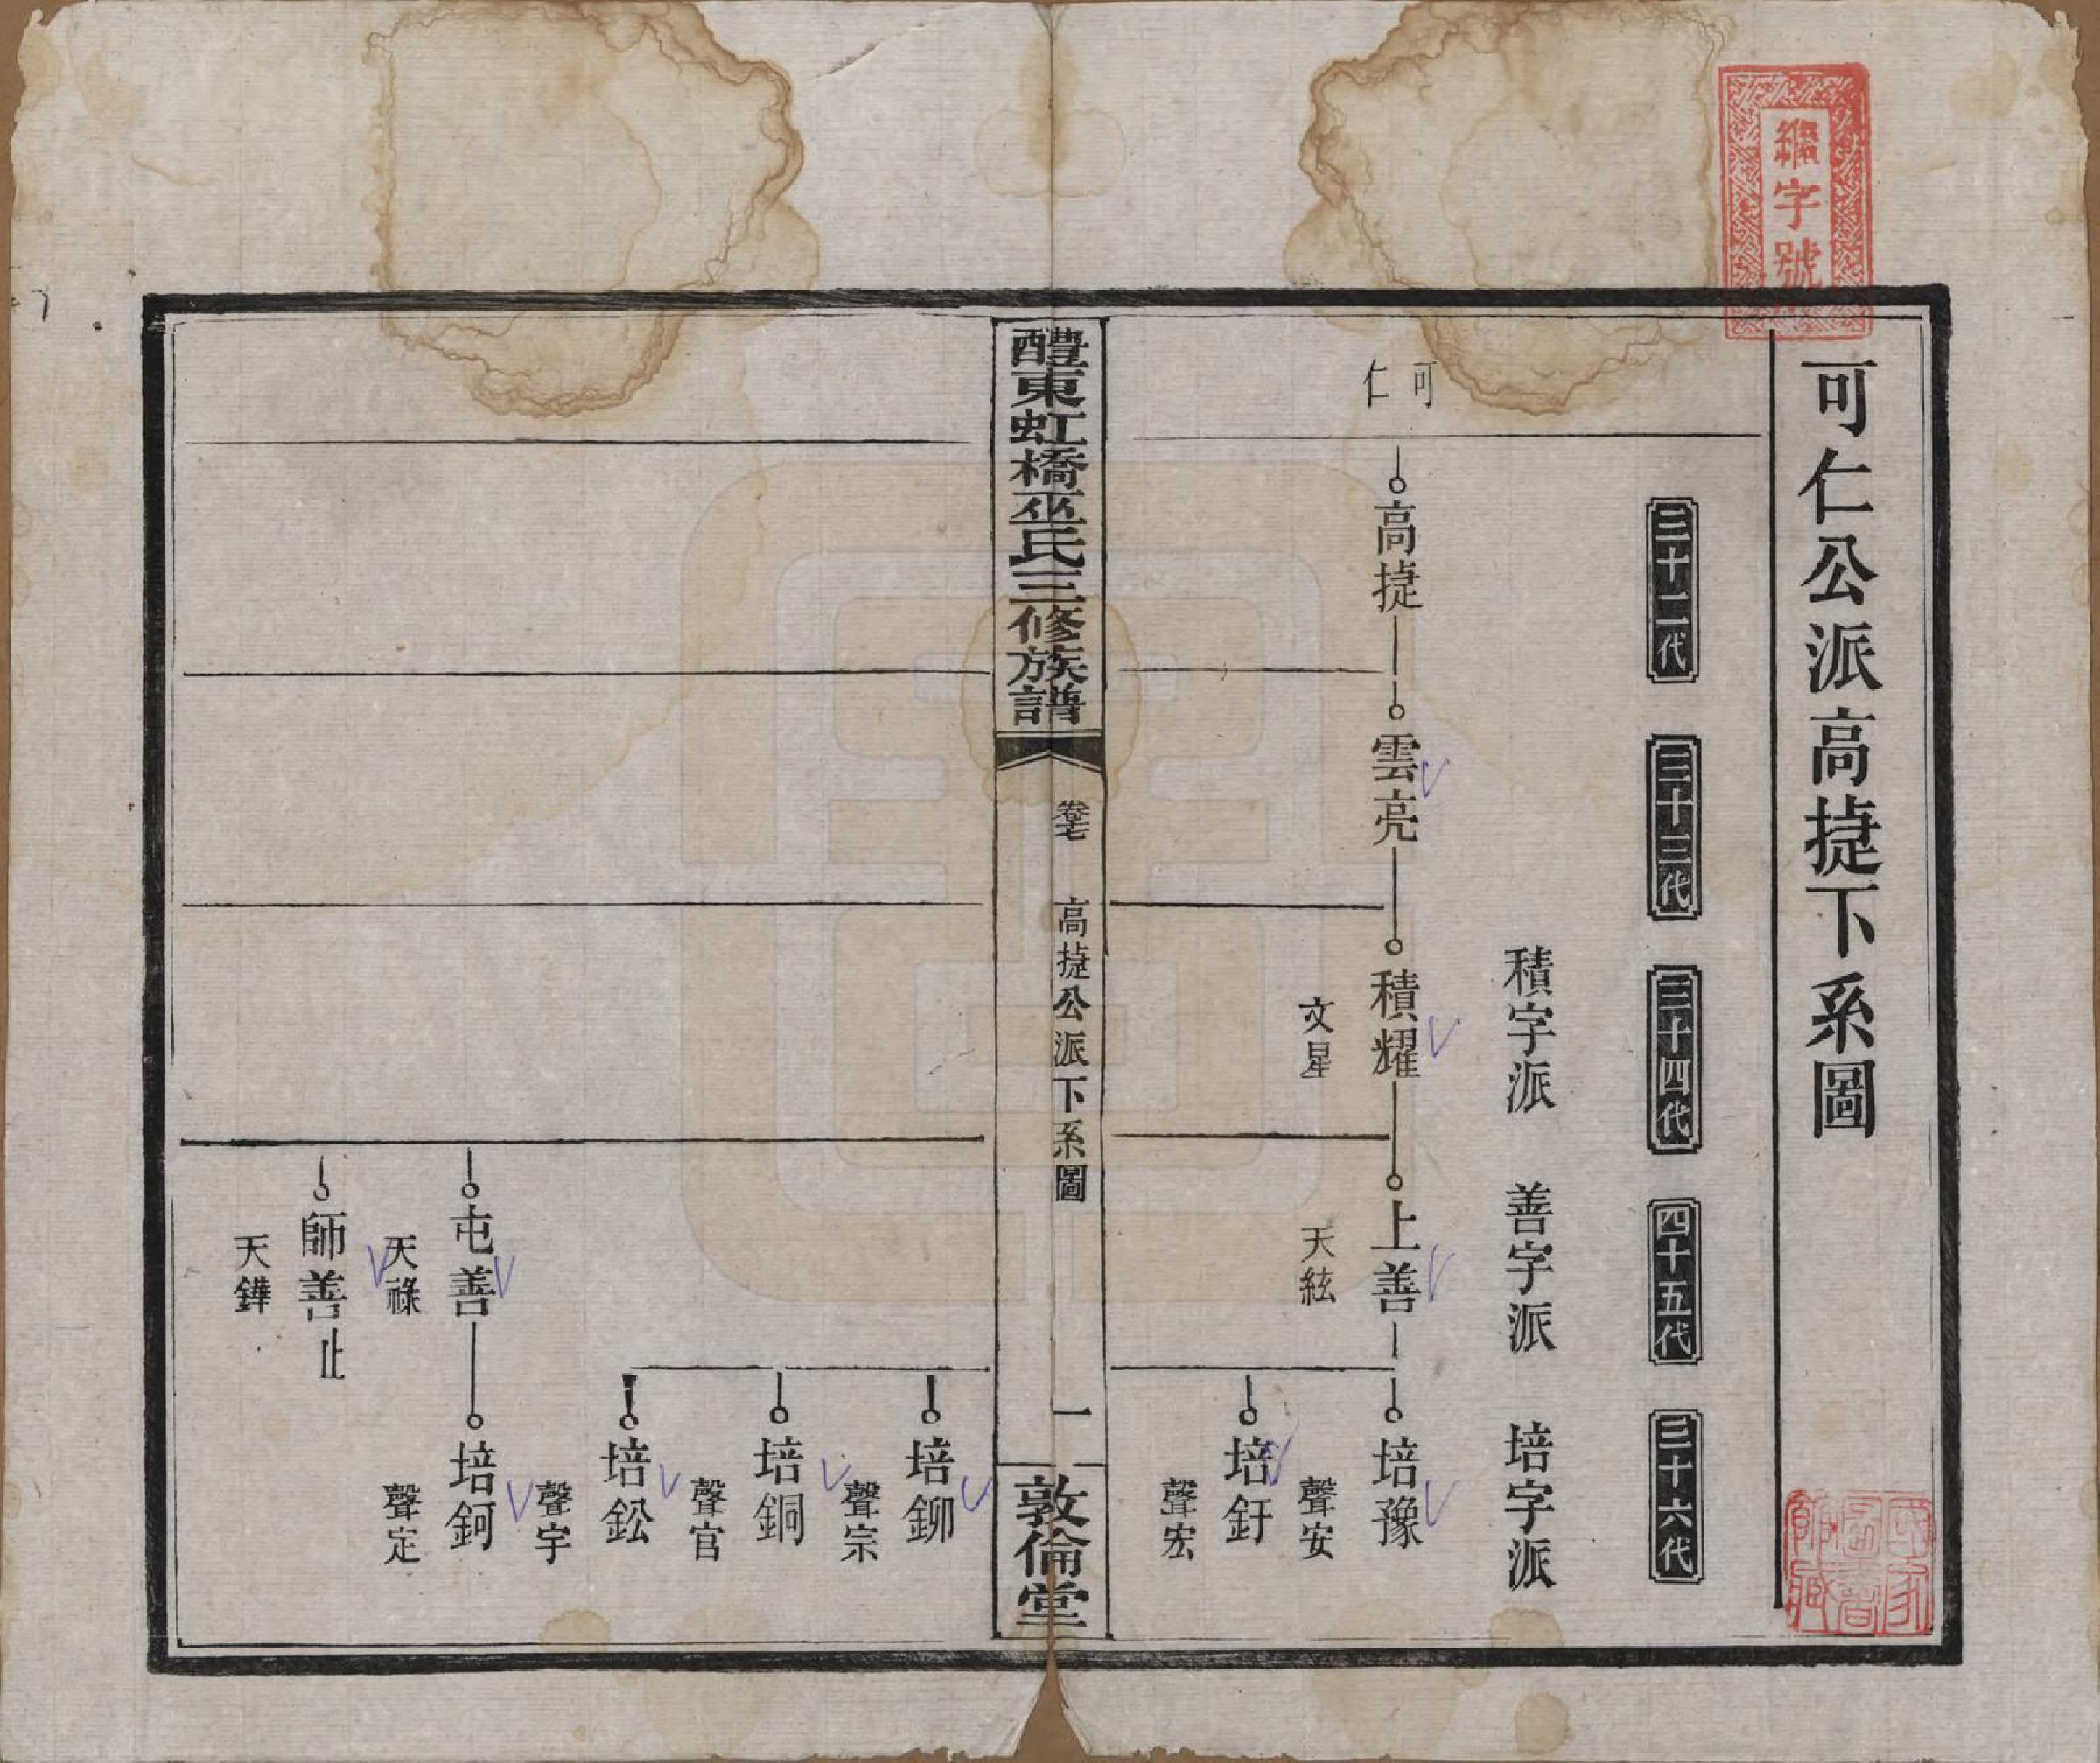 繼字號
可仁公派高捷下系圖
三十二代
三十三代
三十四代
四十五代
三十六代
積字派
善字派
培字派
可仁
高捷
雲亮
積耀
文星
上善
天絃
培豫
聲安
培釪
聲宏
醴東虹橋巫氏三修族譜
卷七
高捷公派下系圖
一
敦倫堂
培鉚
聲宗
培銅
聲官
培鈆
聲宇
屯善
天祿
培鈳
聲定
師善止
天鏵
國家圖書館藏